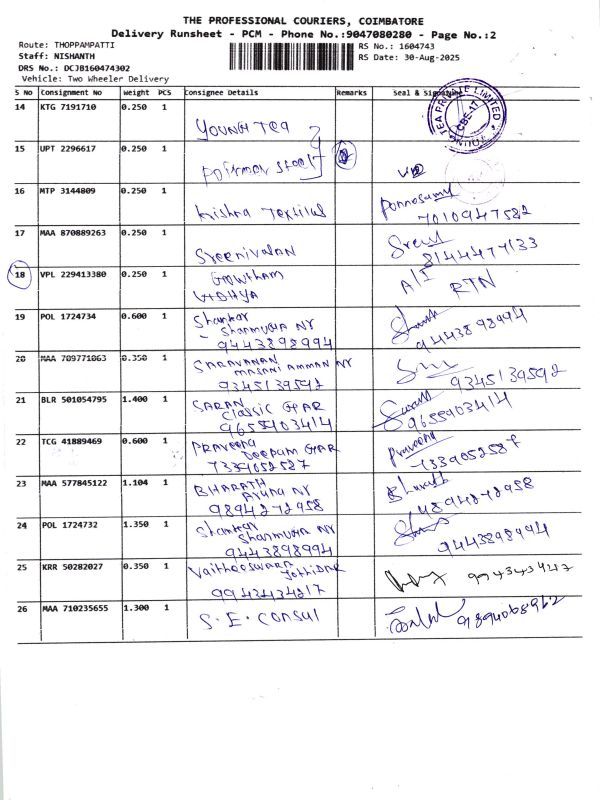 THE PROFESSIONAL COURIERS, COIMBATORE
Delivery Runsheet - PCM - Phone No.:9047080280 - Page No.:2
Route: THOPPAMPATTI
RS No.: 1604743
Staff: NISHANTH
RS Date: 30-Aug-2025
DRS No.: DCJB160474302
Vehicle: Two Wheeler Delivery
S NO Consignment No Weight PCS Consignee Details Remarks Seal & Signature
14 KTG 7191710 0.250 1 Young Tea
15 UPT 2296617 0.250 1
16 MTP 3144809 0.250 1 Krishna Textilus Ponnosamy
7010947582
17 MAA 870889263 0.250 1 Sreenivasan
8144477133
18 VPL 229413380 0.250 1 Gowtham
VIDHYA RTN
19 POL 1724734 0.600 1 Shankar
Shanmuga NR
9443898994 9443898994
20 MAA 709771063 0.350 1 SARAVANAN
MASANI AMMAN NR
9345139592 9345139592
21 BLR 501054795 1.400 1 SARAN
Classic GHAR
9655903414 9655903414
22 TCG 41889469 0.600 1 PRAVEENA Praveena
Deepam GHAR
7339052587 7339052587
23 MAA 577845122 1.104 1 BHARATH Bharath
Aruna NR
9894272958
24 POL 1724732 1.350 1 Shankar
Shanmuga NR
9443898994 9443898994
25 KRR 50282027 0.350 1 Vaitheeswara
26 MAA 710235655 1.300 1 S.E. Consul